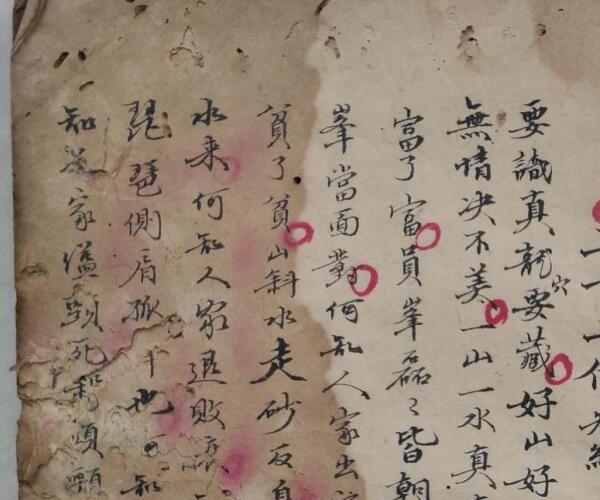 要識真龍穴要藏好山好
無情决不美一山一水真
富了富員峯磊〻皆朝
峯當面對何知人家出
貧了貧山斜水走砂反
水来何知人家退敗
琵琶側肩孤也知
知家縊頸死項頸